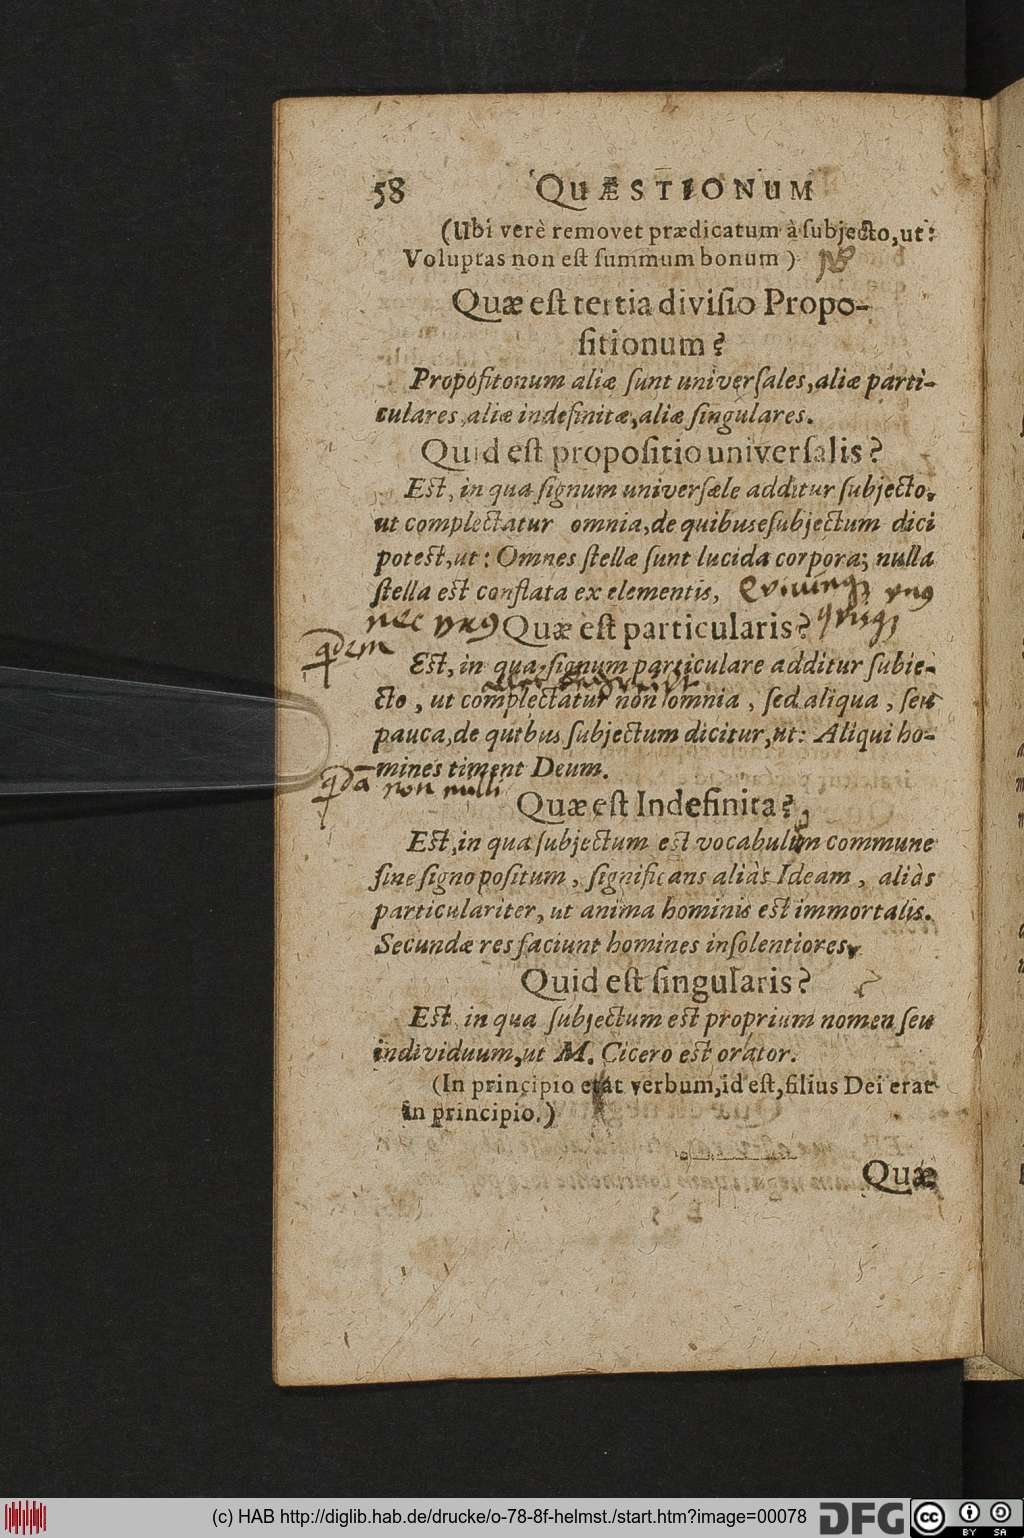 58 QUÆSTIONUM
(Ubi verè removet prædicatum à ſubjecto,ut:
Voluptas non eſt ſummum bonum)
Quæ eſt tertia diviſio Propo-
ſitionum?
Propoſitonum aliæ ſunt univerſales,aliæ parti-
culares,aliæ indefinitæ,aliæ ſingulares.
Quid eſt propoſitio univerſalis?
Eſt, in qua ſignum univerſæle additur ſubjecto,
ut complectatur omnia,de quibuseſubjectum dici
poteſt,ut: Omnes ſtellæ ſunt lucida corpora; nulla
ſtella eſt conflata ex elementis,
nec
Quæ eſt particularis?
Eſt, in qua ſignum particulare additur ſubje-
cto, ut complectatur non omnia, ſed aliqua, ſeu
pauca,de quibus ſubjectum dicitur,ut: Aliqui ho-
mines timent Deum.
non nulli
Quæ eſt Indefinita?
Eſt,in qua ſubjectum eſt vocabulum commune
ſine ſigno poſitum, ſignificans aliàs Ideam, aliàs
particulariter, ut anima hominis eſt immortalis.
Secundæ res faciunt homines inſolentiores,
Quid eſt ſingularis?
Eſt in qua ſubjectum eſt proprium nomen ſeu
individuum,ut M. Cicero eſt orator.
(In principio erat verbum,id eſt,filius Dei erat
in principio.)
Quæ
(c) HAB http://diglib.hab.de/drucke/o-78-8f-helmst./start.htm?image=00078 DFG cc BY SA